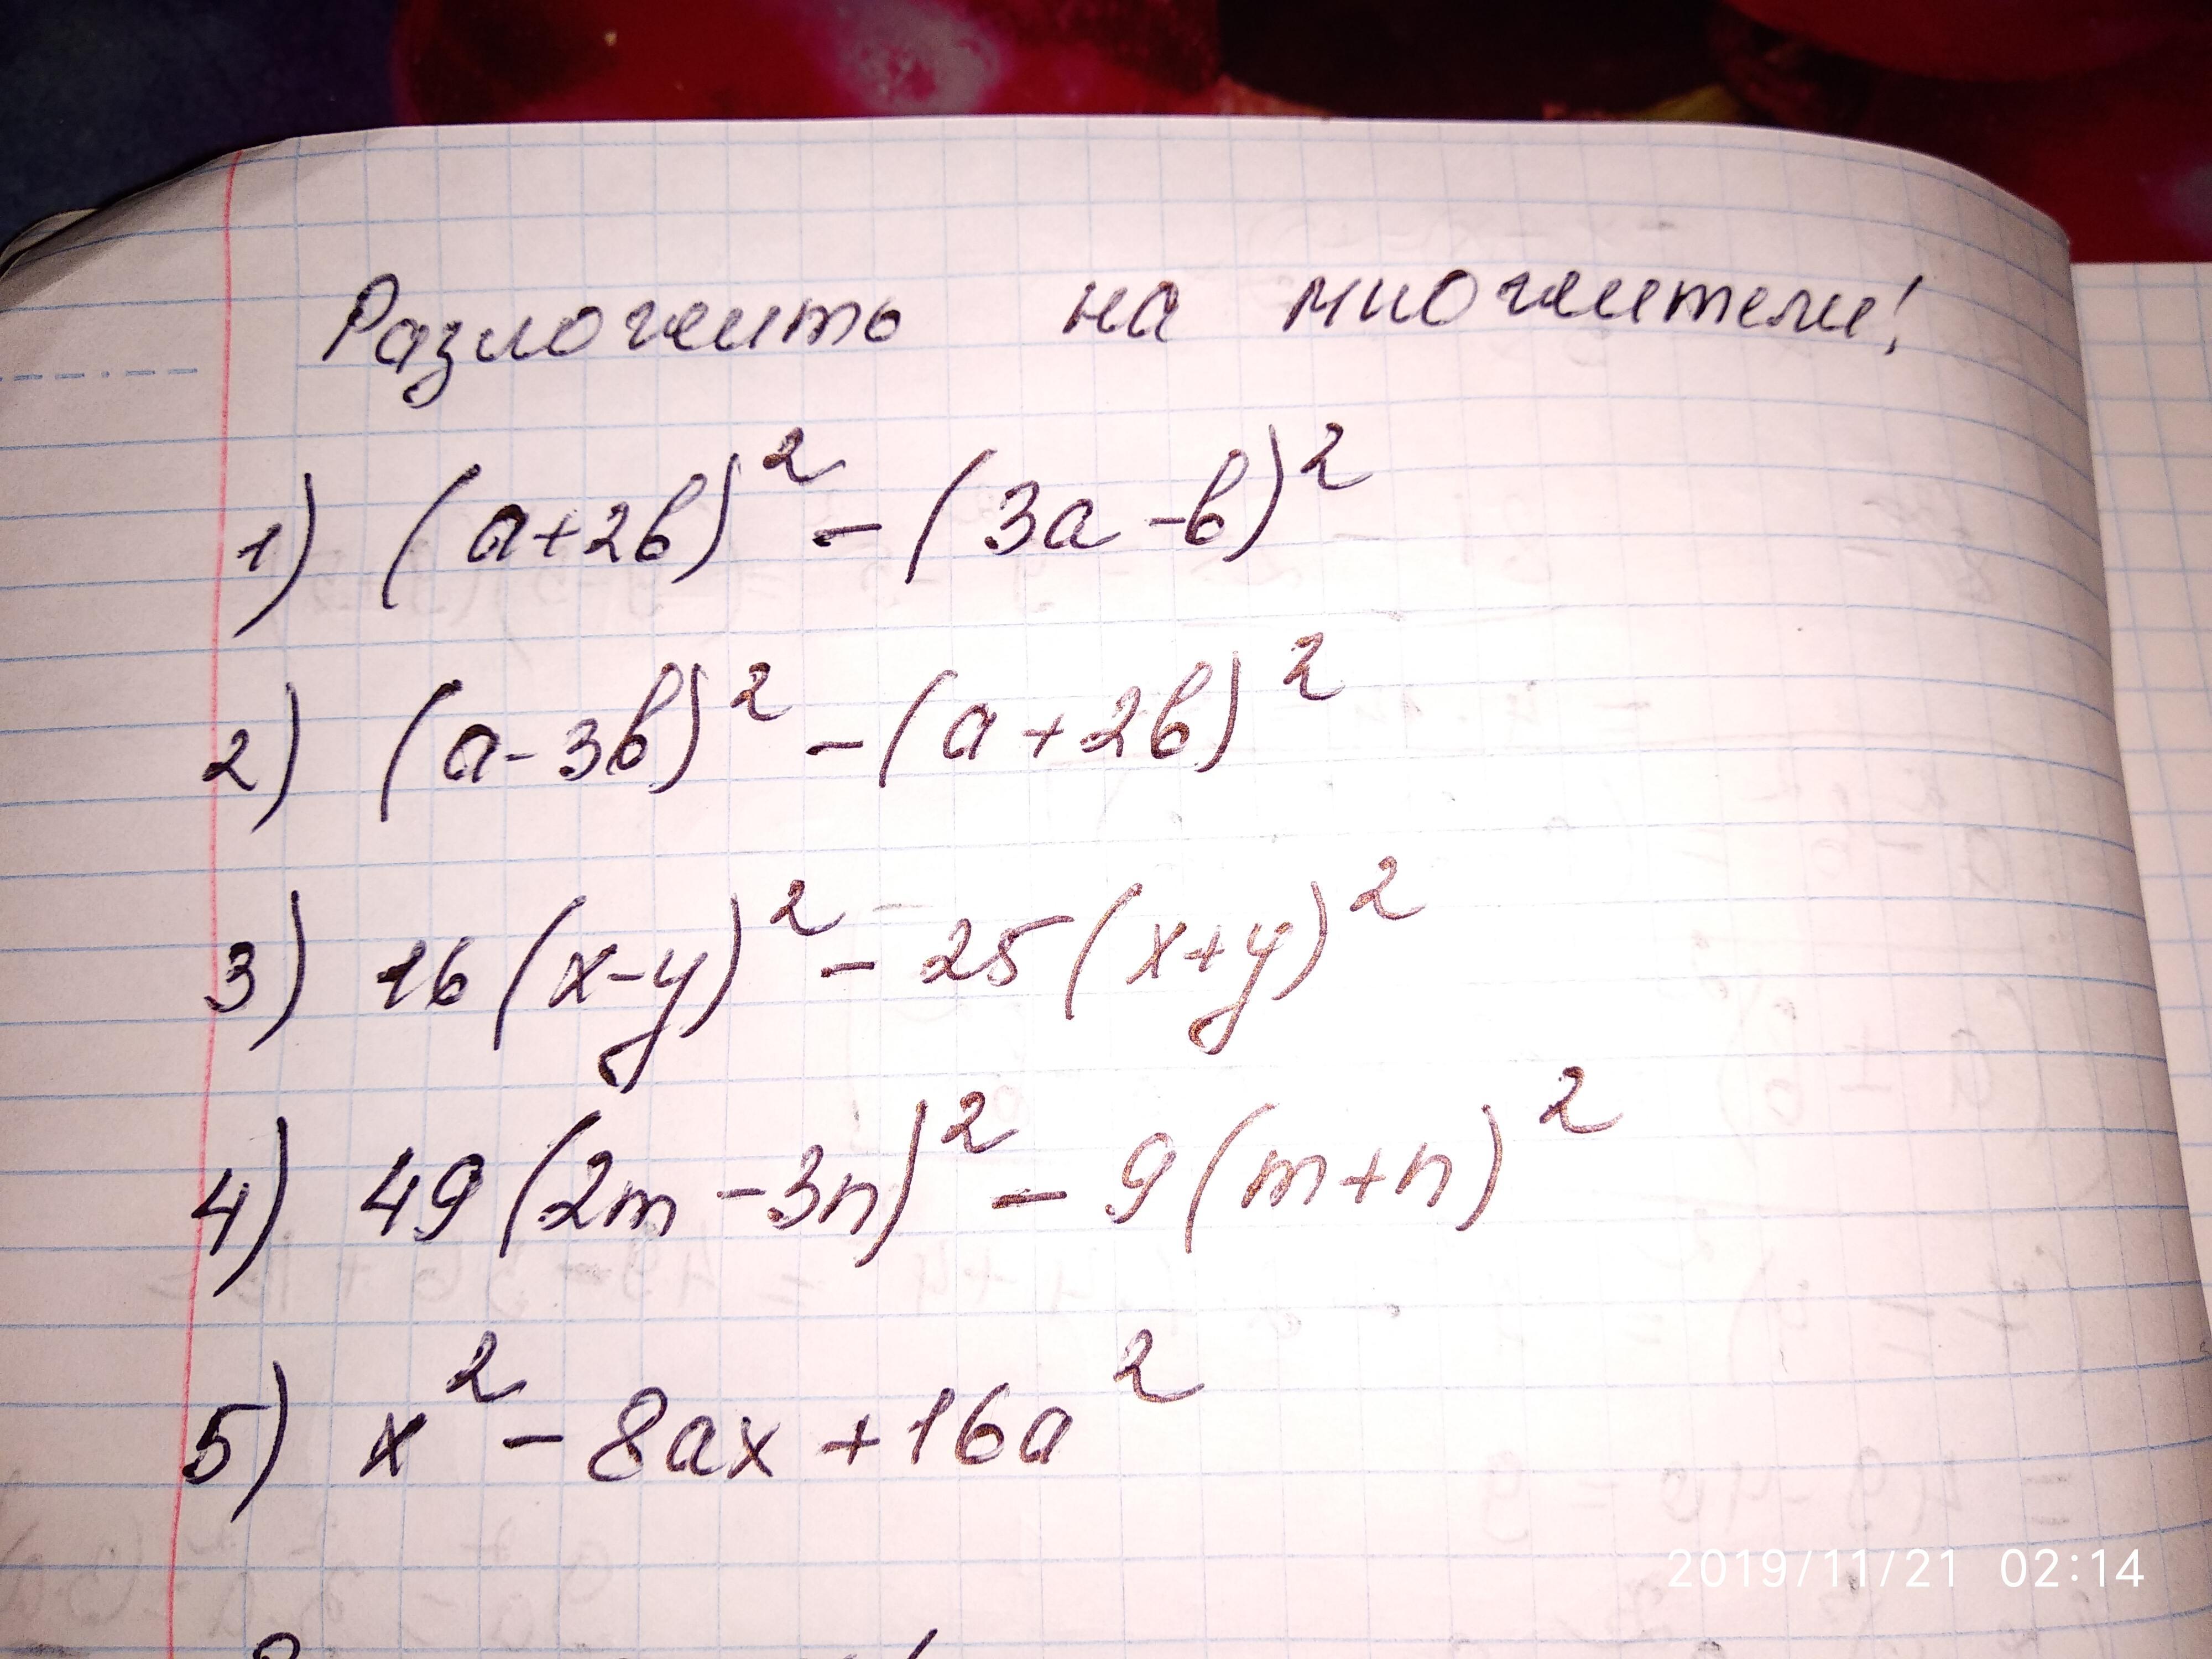 Разложить на множители!
1) (a+2b)² - (3a-b)²
2) (a-3b)² - (a+2b)²
3) 16(x-y)² - 25(x+y)²
4) 49(2m-3n)² - 9(m+n)²
5) x² - 8ax + 16a²
2019/11/21 02:14